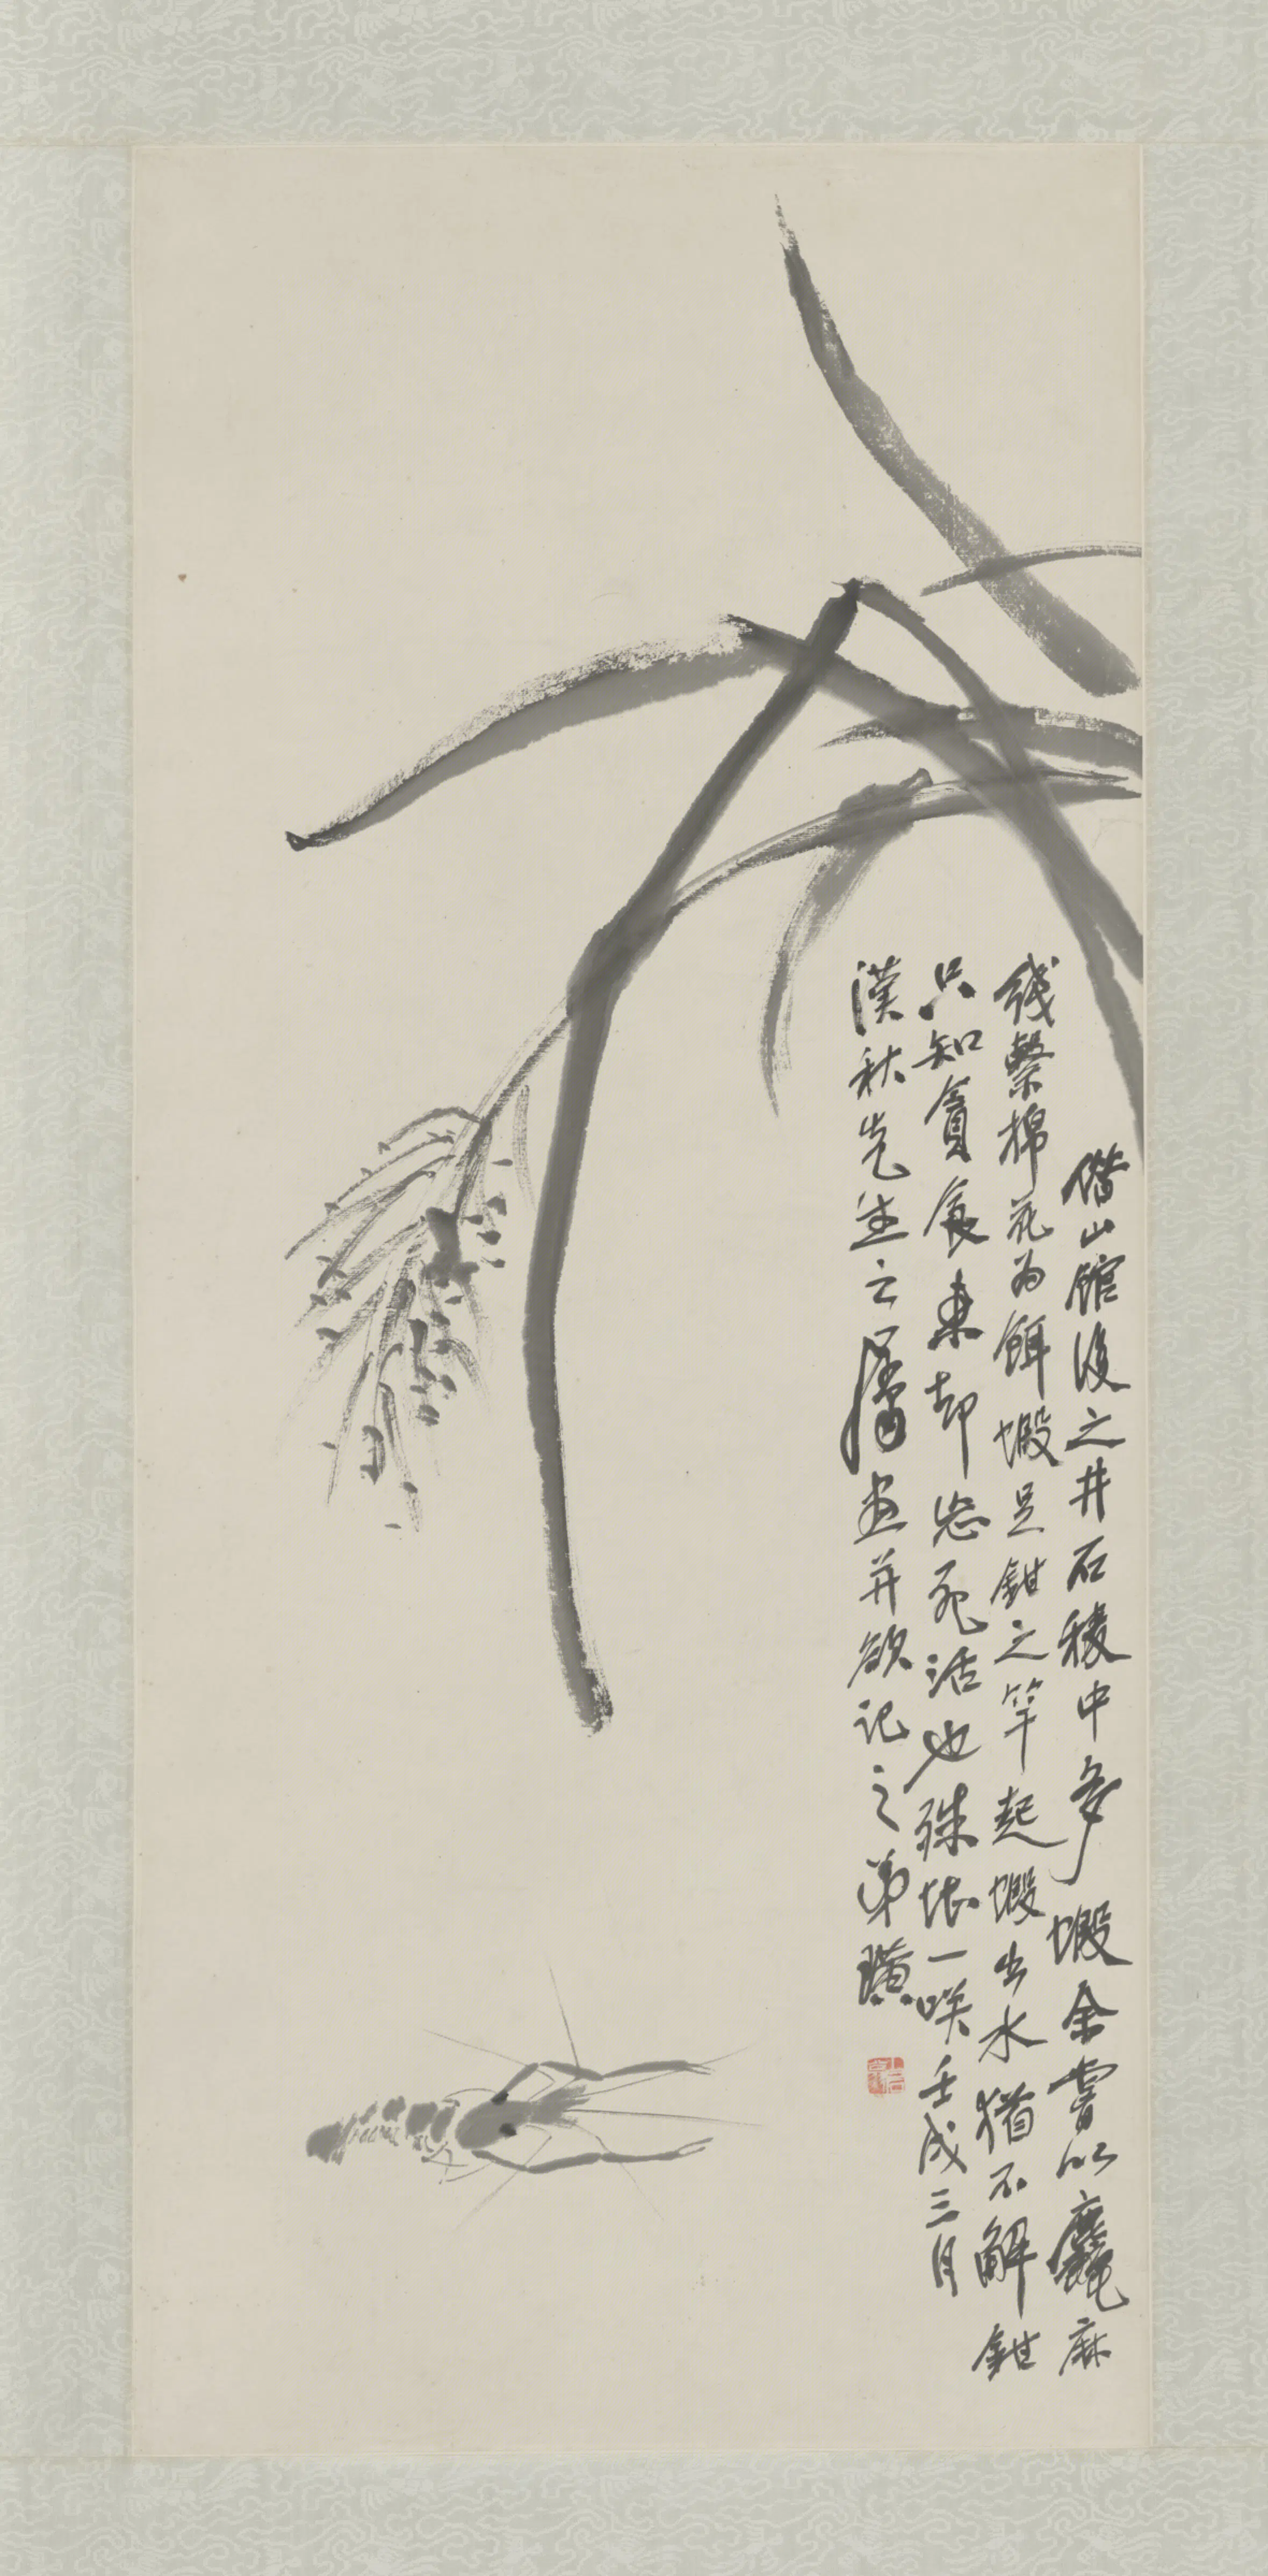 借山館後之井石稜中多蝦余嘗以麤麻
綫繫棉花為餌蝦足鉗之竿起蝦出水猶不解鉗
只知貪食却忘死活也殊堪一咲壬戌三月
漢秋先生之屬畫并欲記之弟璜